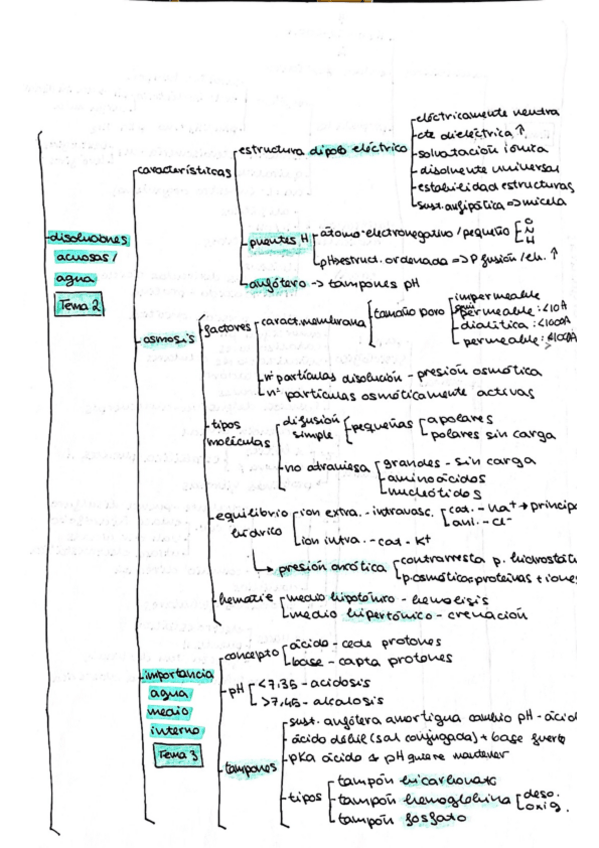 disoluciones
acuosas/
agua
Tema 2
características
estructura dipolo eléctrico
eléctricamente neutra
cte dieléctrica ↑
solvatación iónica
disolvente universal
estabilidad estructuras
sust. anfipática => micela
puentes H
átomo electronegativo/pequeño
O
N
H
pH estruct. ordenada => P fusión/eb. ↑
anfótero -> tampones pH
osmosis
factores
caract. membrana
tamaño poro
impermeable
semi permeable: <10A
dialítica: <1000A
permeable: ≤1000A
nº partículas disolución - presión osmótica
nº partículas osmóticamente activas
tipos
moléculas
difusión
simple
pequeñas
apolares
polares sin carga
no atraviesa
grandes - sin carga
aminoácidos
nucleótidos
equilibrio
hídrico
ion extra. - intravasc.
cat. - Na+ → princip
ani. - Cl-
ion intra. - cat - K+
→ presión oncótica
contrarresta p. hidrostáti
p.osmótica=proteínas + iones
hematie
medio hipotónico - hemolisis
medio hipertónico - crenación
importancia
agua
medio
interno
Tema 3
concepto
ácido - cede protones
base - capta protones
pH
<7,35 - acidosis
>7,45 - alcalosis
tampones
sust. anfótera amortigua cambio pH - ácid
ácido débil (sal conjugada) + base fuerte
pKa ácido pH quiere mantener
tipos
tampón bicarbonato
tampón hemoglobina
deso.
oxig.
tampón fosfato